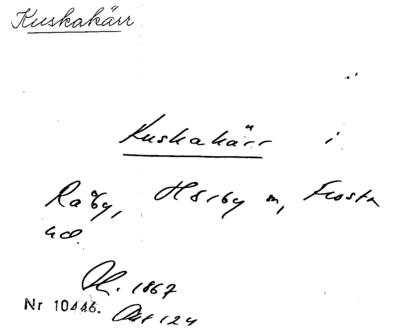 Kuskakärr
Kuskakärr i
Råby, Hörby sn, Frosta
hd.
Ök. 1867
Nr 10446. Akt 124